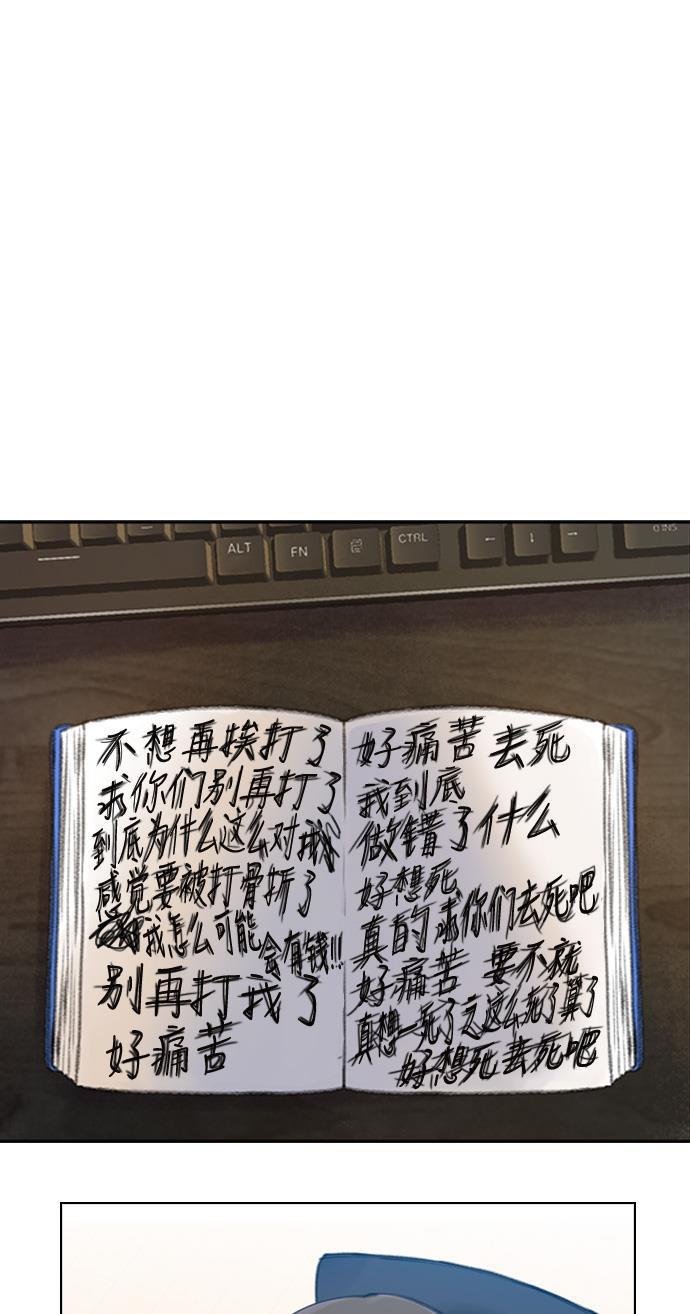 ALT
FN
CTRL
←
↓
→
0 INS
不想再挨打了
求你们别再打了
到底为什么这么对我
感觉要被打骨折了
我怎么可能会有钱!!!
别再打我了
好痛苦
好痛苦去死
我到底
做错了什么
好想死
真的求你们去死吧
好痛苦 要不就
真想一死了之这么死了算了
好想死去死吧